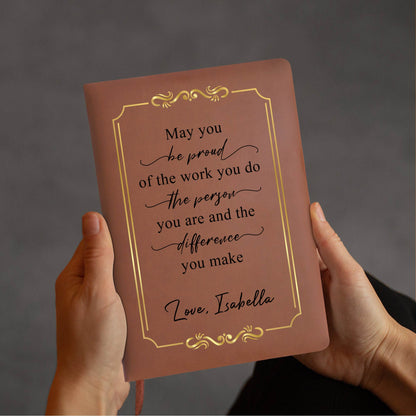 May you
be proud
of the work you do
the person
you are and the
difference
you make
Love, Isabella